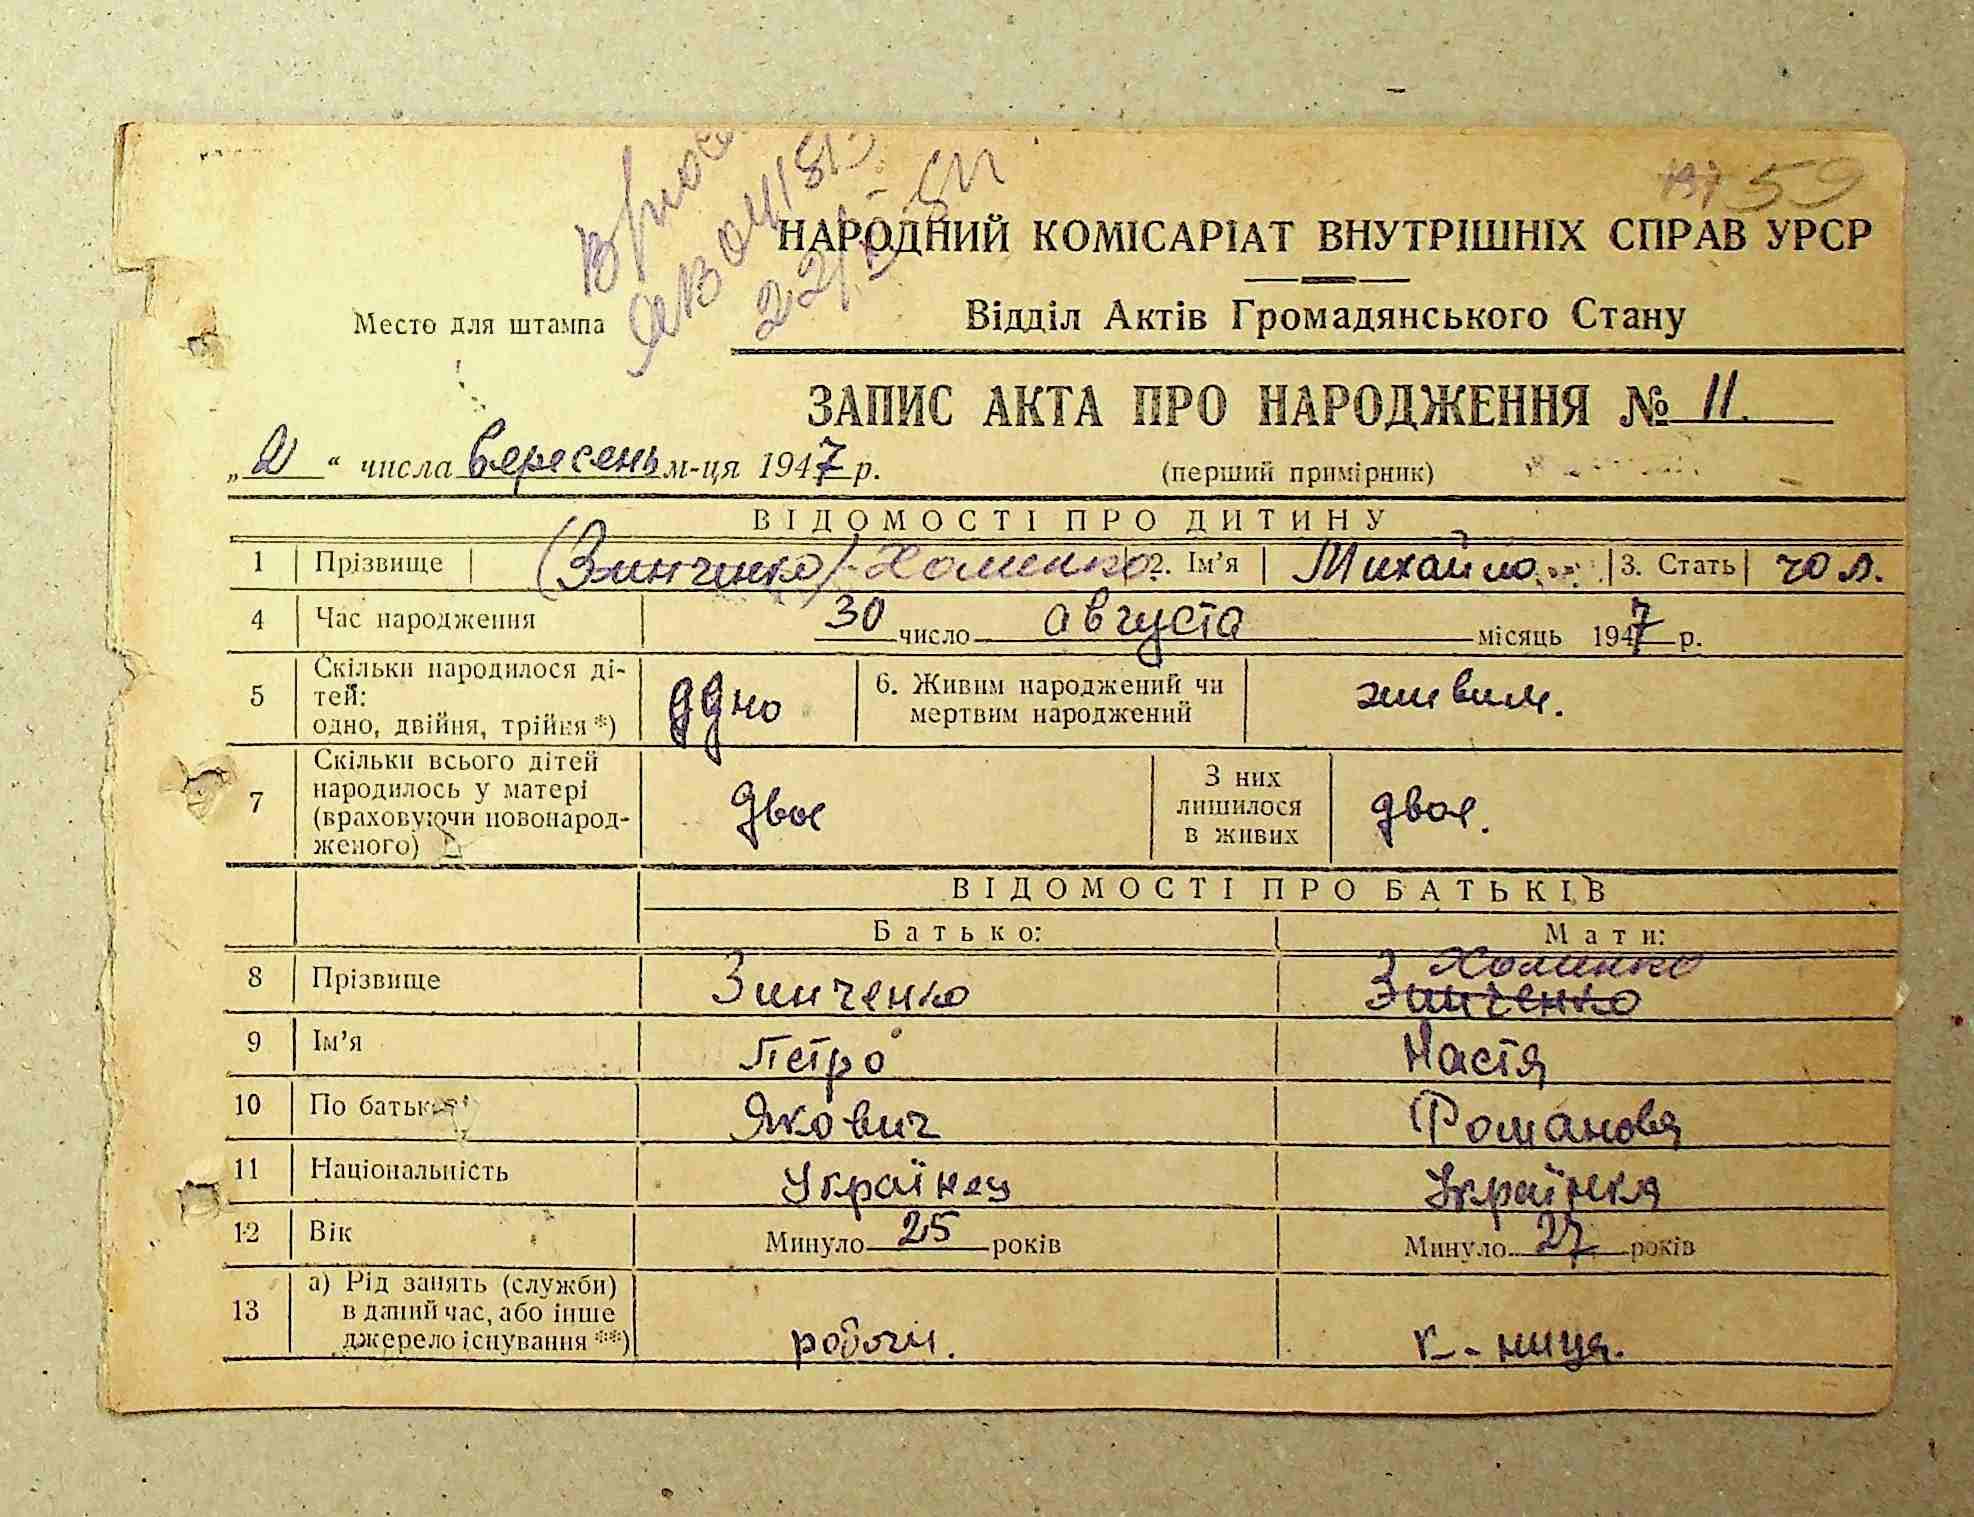 59
НАРОДНИЙ КОМІСАРІАТ ВНУТРІШНІХ СПРАВ УРСР
Место для штампа
Відділ Актів Громадянського Стану
ЗАПИС АКТА ПРО НАРОДЖЕННЯ № 11.
„2“ числа вересень м-ця 1947 р.
(перший примірник)
ВІДОМОСТІ ПРО ДИТИНУ
1 Прізвище (Зинченко) Хоменко 2. Ім’я Михайло 3. Стать чол.
4 Час народження 30 число августа місяць 1947 р.
5 Скільки народилося ді-
тей:
одно, двійня, трійня *) одно 6. Живим народжений чи
мертвим народжений живим.
7 Скільки всього дітей
народилось у матері
(враховуючи новонарод-
женого) двое З них
лишилося
в живих двое.
ВІДОМОСТІ ПРО БАТЬКІВ
Батько: Мати:
8 Прізвище Зинченко Хоменко
Зинченко
9 Ім’я Петро Настя
10 По батькові Якович Романовя
11 Національність Українец Українка
12 Вік Минуло 25 років Минуло 27 років
13 а) Рід занять (служби)
в даний час, або інше
джерело існування **) робочи. к-ница.